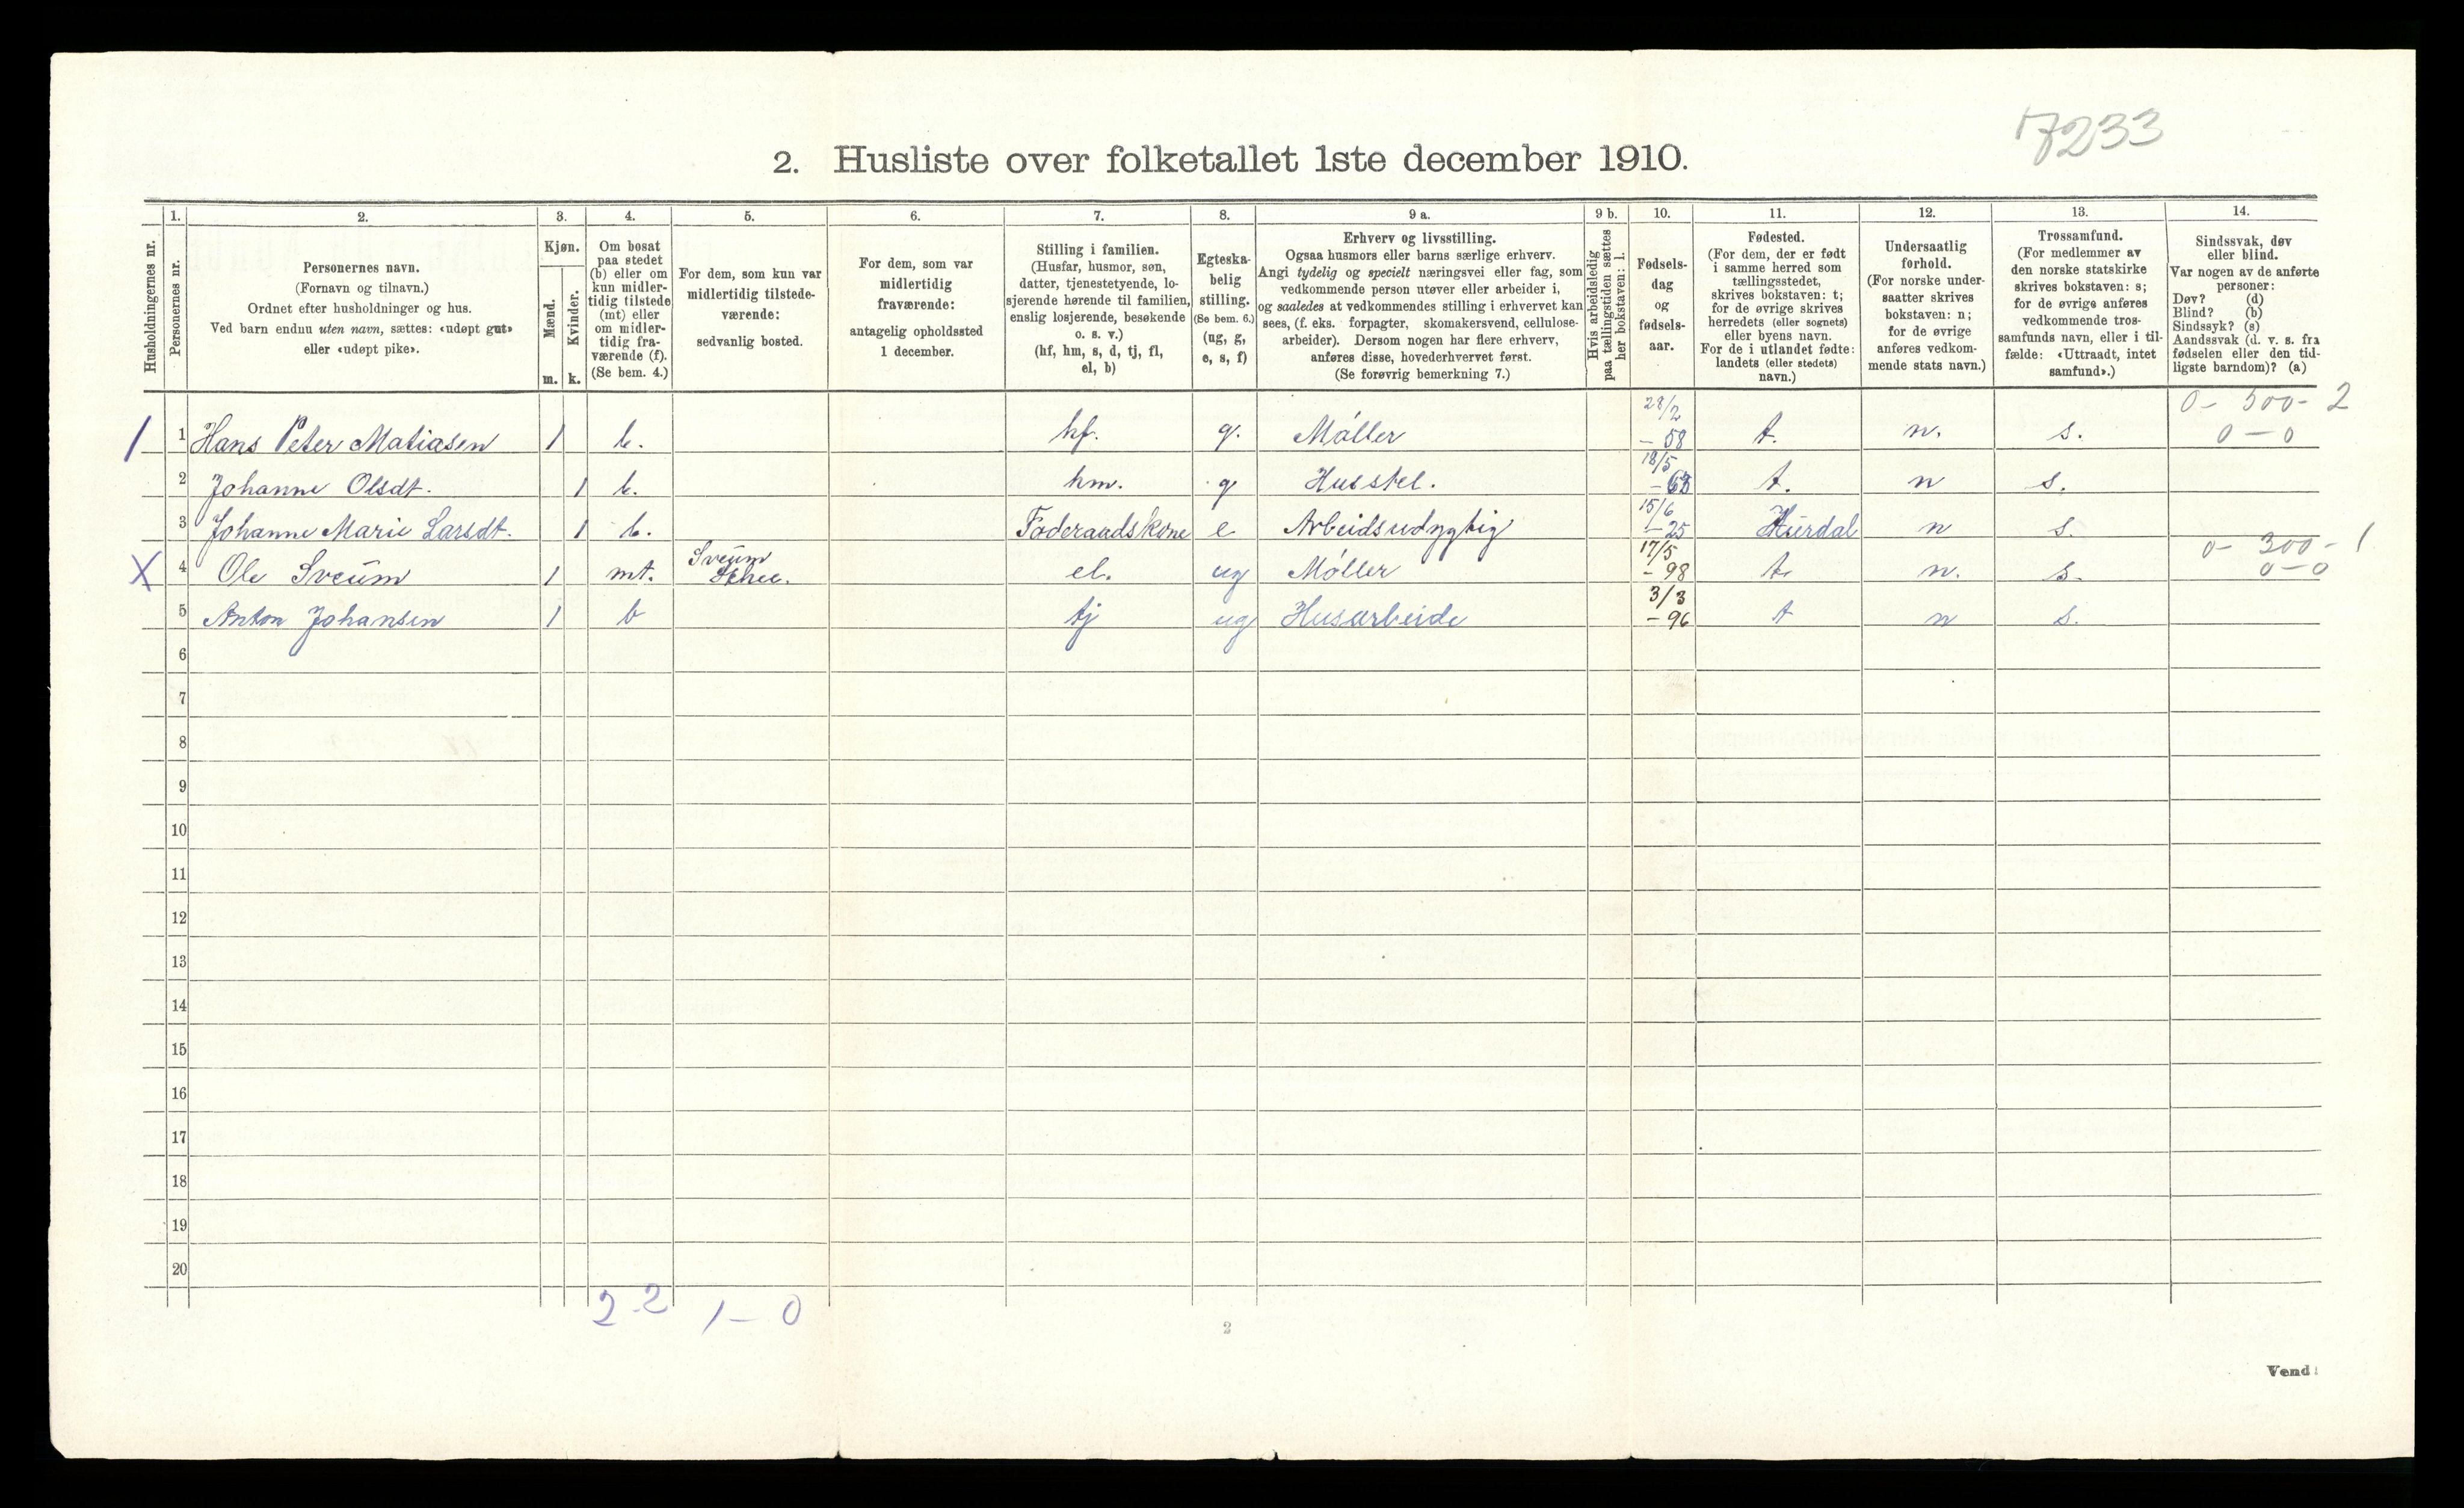 7233
2. Husliste over folketallet 1ste december 1910.
Husholdningernes nr.
1.
Personernes nr.
2.
Personernes navn.
(Fornavn og tilnavn.)
Ordnet efter husholdninger og hus.
Ved barn endnu uten navn, sættes: «udøpt gut»
eller «udøpt pike».
3.
Kjøn.
Mænd.
Kvinder.
m. k.
4.
Om bosat
paa stedet
(b) eller om
kun midler-
tidig tilstede
(mt) eller
om midler-
tidig fra-
værende (f).
(Se bem. 4.)
5.
For dem, som kun var
midlertidig tilstede-
værende:
sedvanlig bosted.
6.
For dem, som var
midlertidig
fraværende:
antagelig opholdssted
1 december.
7.
Stilling i familien.
(Husfar, husmor, søn,
datter, tjenestetyende, lo-
sjerende hørende til familien,
enslig losjerende, besøkende
o. s. v.)
(hf, hm, s, d, tj, fl,
el, b)
8.
Egteska-
belig
stilling.
(Se bem. 6.)
(ug, g,
e, s, f)
9 a.
Erhverv og livsstilling.
Ogsaa husmors eller barns særlige erhverv.
Angi tydelig og specielt næringsvei eller fag, som
vedkommende person utøver eller arbeider i,
og saaledes at vedkommendes stilling i erhvervet kan
sees, (f. eks. forpagter, skomakersvend, cellulose-
arbeider). Dersom nogen har flere erhverv,
anføres disse, hovederhvervet først.
(Se forøvrig bemerkning 7.)
9 b.
Hvis arbeidsledig
paa tællingstiden sættes
her bokstaven: l.
10.
Fødsels-
dag
og
fødsels-
aar.
11.
Fødested.
(For dem, der er født
i samme herred som
tællingsstedet,
skrives bokstaven: t;
for de øvrige skrives
herredets (eller sognets)
eller byens navn.
For de i utlandet fødte:
landets (eller stedets)
navn.)
12.
Undersaatlig
forhold.
(For norske under-
saatter skrives
bokstaven: n;
for de øvrige
anføres vedkom-
mende stats navn.)
13.
Trossamfund.
(For medlemmer av
den norske statskirke
skrives bokstaven: s;
for de øvrige anføres
vedkommende tros-
samfunds navn, eller i til-
fælde: «Uttraadt, intet
samfund».)
14.
Sindssvak, døv
eller blind.
Var nogen av de anførte
personer:
Døv? (d)
Blind? (b)
Sindssyk? (s)
Aandssvak (d. v. s. fra
fødselen eller den tid-
ligste barndom)? (a)
0- 500- 2
1 1 Hans Peter Matiasen 1 b. hf. g. Møller 28/2 -58 t. n. s. 0-0
2 Johanne Olsdt. 1 b. hm. g Husstel. 18/5 -63 t. n s.
3 Johanne Marie Larsdt. 1 b. Føderaadskone e Arbeidsudygtig 15/6 -25 Hurdal n s.
0- 300- 1
X 4 Ole Sveum 1 mt. Sveum el. ug Møller 17/5 -98 t. n. s. 0-0
5 Anton Johansen 1 b tj ug Husarbeide 3/3 -96 t n s.
6
7
8
9
10
11
12
13
14
15
16
17
18
19
20
2-2 1-0
2
Vend!